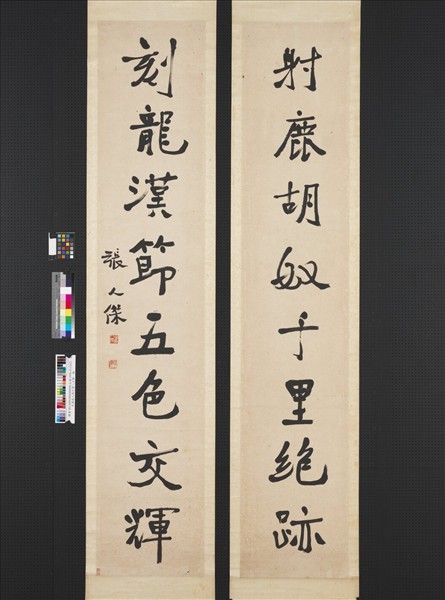 射鹿胡奴千里绝跡
刻龍漢節五色交輝
張人傑